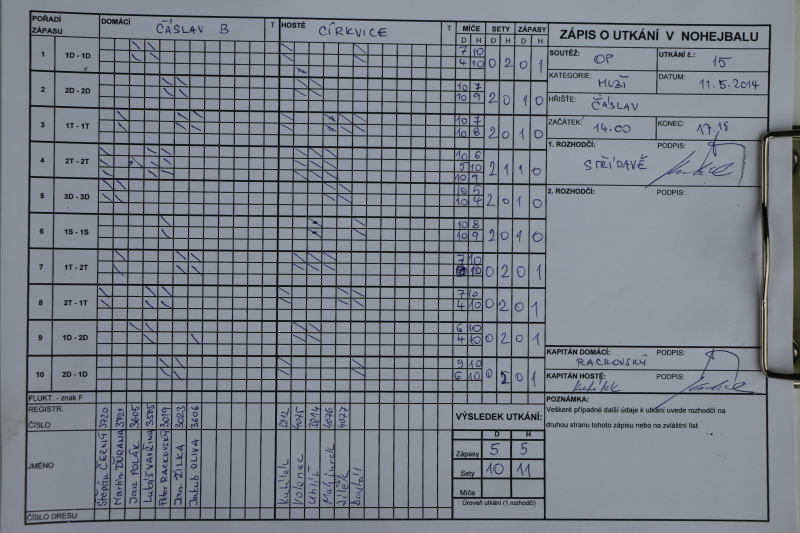 POŘADÍ ZÁPASU DOMÁCÍ ČÁSLAV B T HOSTÉ CÍRKVICE T MÍČE SETY ZÁPASY
D H D H D H
1 1D - 1D 7 10 0 2 0 1
4 10
2 2D - 2D 10 7 2 0 1 0
10 9
3 1T - 1T 10 7 2 0 1 0
10 8
4 2T - 2T 10 6 2 1 1 0
5 10
10 9
5 3D - 3D 10 5 2 0 1 0
10 4
6 1S - 1S 10 8 2 0 1 0
10 9
7 1T - 2T 7 10 0 2 0 1
10
8 2T - 1T 7 10 0 2 0 1
4 10
9 1D - 2D 6 10 0 2 0 1
4 10
10 2D - 1D 9 10 0 2 0 1
6 10
FLUKT. - znak F
REGISTR.
ČÍSLO 3720 3721 3605 3585 3019 3023 3606 4075 3814 4076 4077
JMÉNO Štěpán ČERNÝ Martin ĎURANA Jan POLÁK Lukáš VAVŘINA Petr RACKOVSKÝ Jan ŽILKA Jakub OLIVA Kubíček Volenec Uhlíř Jílek Dostál
ČÍSLO DRESU
VÝSLEDEK UTKÁNÍ:
D H
Zápasy 5 5
Sety 10 11
Míče
Úroveň utkání (1.rozhodčí)
ZÁPIS O UTKÁNÍ V NOHEJBALU
SOUTĚŽ: OP UTKÁNÍ č.: 15
KATEGORIE: MUŽI DATUM: 11.5.2014
HŘIŠTĚ: ČÁSLAV
ZAČÁTEK: 14.00 KONEC: 17.15
1. ROZHODČÍ: STŘÍDAVĚ PODPIS:
2. ROZHODČÍ: PODPIS:
KAPITÁN DOMÁCÍ: RACKOVSKÝ PODPIS:
KAPITÁN HOSTÉ: Kubíček PODPIS:
POZNÁMKA:
Veškeré případné další údaje k utkání uvede rozhodčí na
druhou stranu tohoto zápisu nebo na zvláštní list